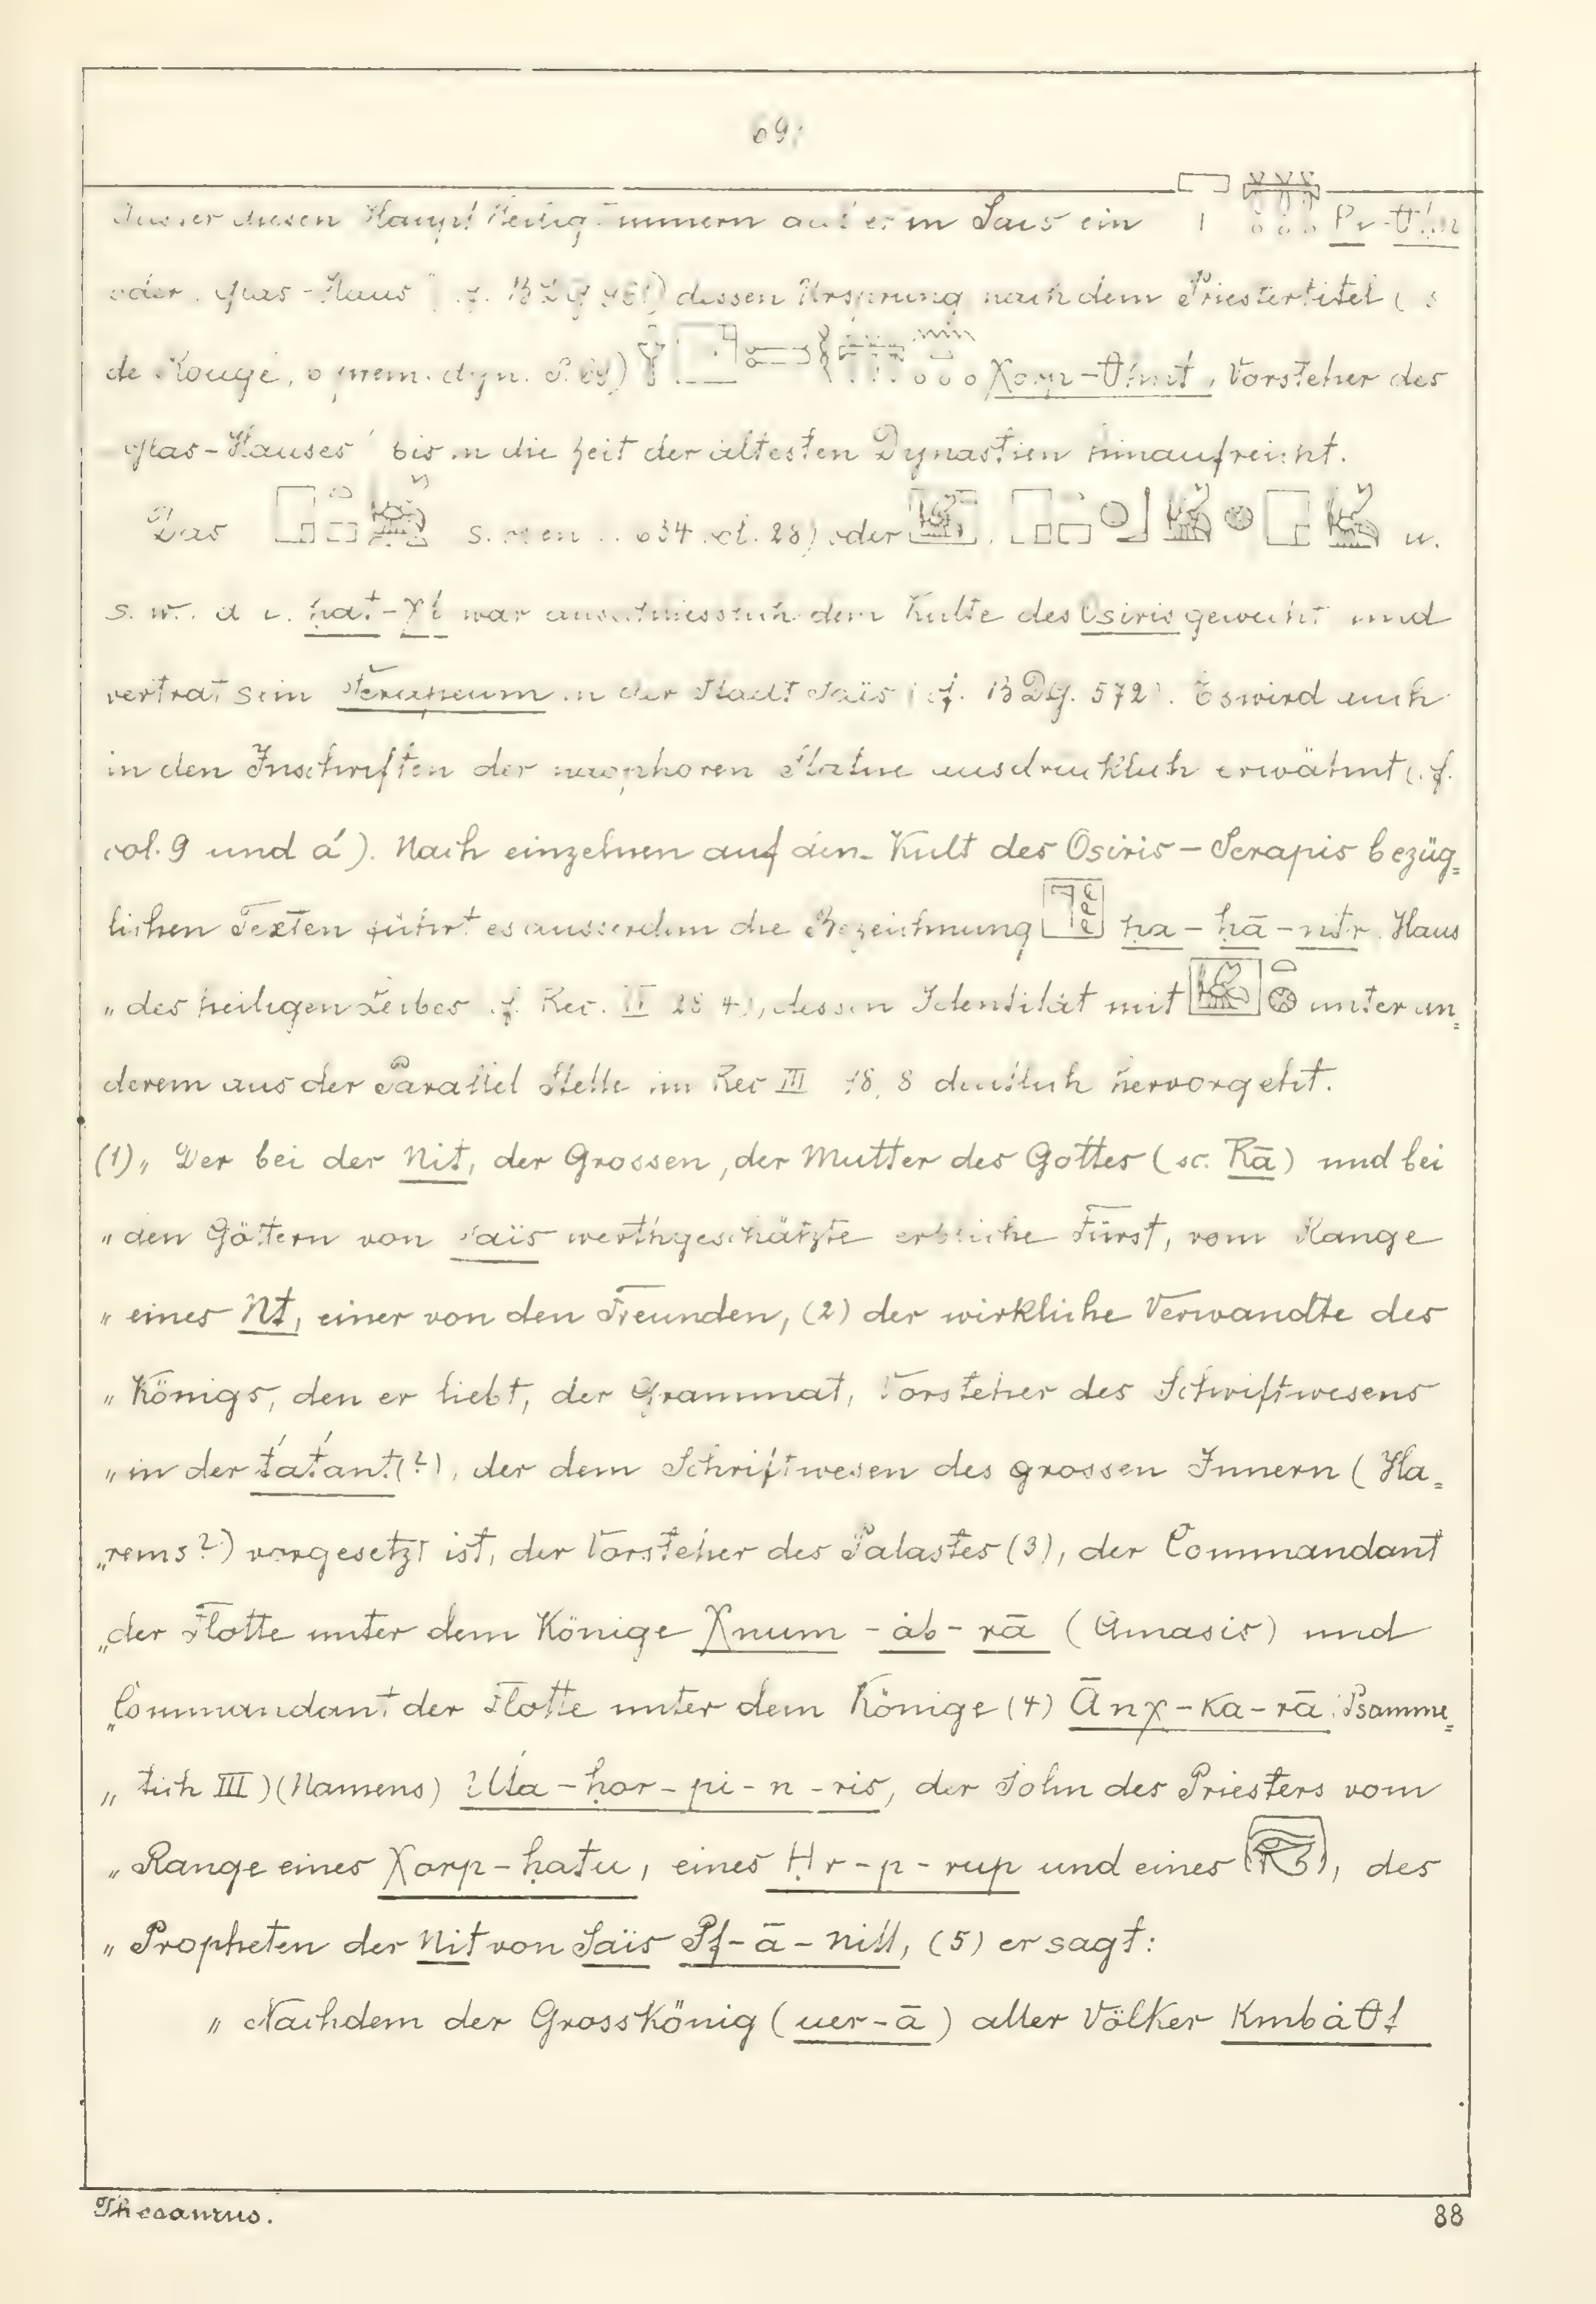 69
diesen Haupt Heiligthümern in Sais ein
oder dessen Ursprung nach dem Priestertitel (s
de Rougé, prem. dyn. S. 69) Xorp-θḥnt, Vorsteher des
Glas-Hauses" bis in die Zeit der ältesten Dynastien hinaufreicht.
Das s. oben 634 col. 28) oder u.
s. w. d. i. ḥat-χt war ausschliesslich dem Kulte des Osiris geweiht und
vertrat sein Serapeum in der Stadt Saïs (cf. BDG. 572). Es wird auch
in den Inschriften der naophoren Statue ausdrücklich erwähnt (cf.
col. 9 und á). Nach einzelnen auf den Kult des Osiris – Serapis bezüg=
lichen Texten führt es ausserdem die Bezeichnung ḥa – ḥā – ntr. Haus
„ des heiligen Leibes cf. Rec. II 28 4), dessen Identität mit unter an=
derem aus der Parallel Stelle im Rec III 18, 8 deutlich hervorgeht.
(1) „ Der bei der Nit, der Grossen, der Mutter des Gottes (sc. Rā) und bei
„ den Göttern von Saïs werthgeschätzte erbliche Fürst, vom Range
„ eines Nt, einer von den Freunden, (2) der wirkliche Verwandte des
„ Königs, den er liebt, der Grammat, Vorsteher des Schriftwesens
„ in der t́at́ant (?), der dem Schriftwesen des grossen Innern (Ha=
„ rems?) vorgesetzt ist, der Vorsteher des Palastes (3), der Commandant
„ der Flotte unter dem Könige Xnum – ȧb – rā (Amasis) und
„ Commandant der Flotte unter dem Könige (4) Ānχ – Ka – rā (Psamme=
„ tich III) (Namens) Ut́a – ḥor – pi – n – ris, der Sohn des Priesters vom
„ Range eines Xorp – ḥatu, eines Ḥr – p – rup und eines , des
„ Propheten der Nit von Saïs Pf – ā – nitt, (5) er sagt:
„ Nachdem der Grosskönig (uer – ā) aller Völker Kmbȧθt
Thesaurus.
88